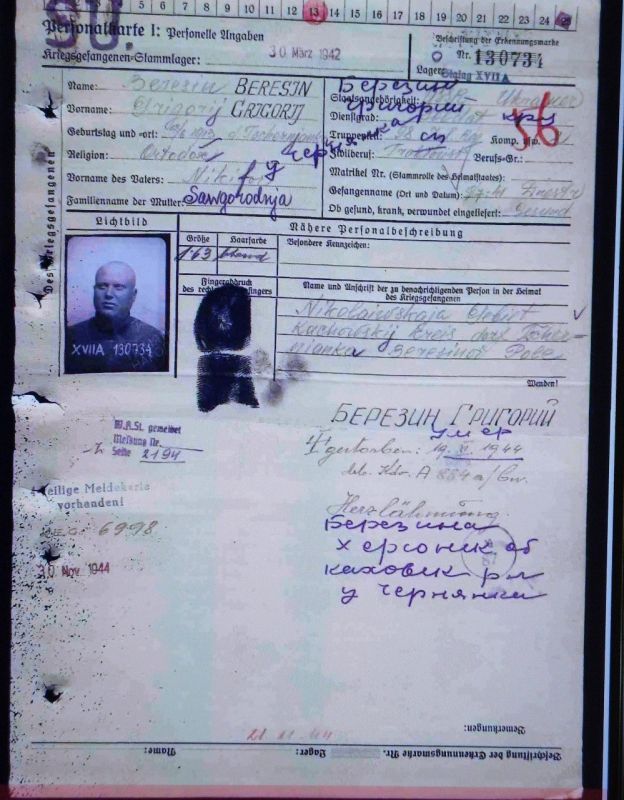 5 6 7 8 9 10 11 12 13 14 15 16 17 18 19 20 21 22 23 24 25
SU.
Personalkarte I: Personelle Angaben
Kriegsgefangenen-Stammlager:
30. März 1942
Beschriftung der Erkennungsmarke
Nr. 130734
Lager: Stalag XVII A
Des Kriegsgefangenen
Name: Beresin BERESIN
Vorname: Grigorij GRIGORIJ
Geburtstag und -ort:
Religion: Ortodox
Vorname des Vaters: Nikifor
Familienname der Mutter: Sawgorodnja
Березин
Григорий
Staatsangehörigkeit: Ukrainer
Dienstgrad: Soldat
56
Truppenteil: Komp. usw.
Zivilberuf: Traktorist Berufs-Gr.:
Matrikel Nr. (Stammrolle des Heimatstaates):
Gefangennahme (Ort und Datum):
Ob gefund, krank, verwundet eingeliefert: Gesund
Lichtbild
XVIIA 130734
Nähere Personalbeschreibung
Größe Haarfarbe Besondere Kennzeichen:
1.63 blond
Fingerabdruck
des rechten Zeigefingers
Name und Anschrift der zu benachrichtigenden Person in der Heimat
des Kriegsgefangenen
Nikolaewskaja Gebiet
Kachowskij Kreis dorf Tscher-
nianka
Wenden!
БЕРЕЗИН ГРИГОРИЙ
умер
gestorben: 19. XI. 1944
W.A.St. gemeldet
Meldung Nr.
Seite 2194
Herzlähmung
Березина
Херсоник об
каховик рл
у чернянки
-teilige Meldekarte
vorhanden!
6998
30. Nov. 1944
Bemerkungen:
Beschriftung der Erkennungsmarke Nr. Lager: Name: